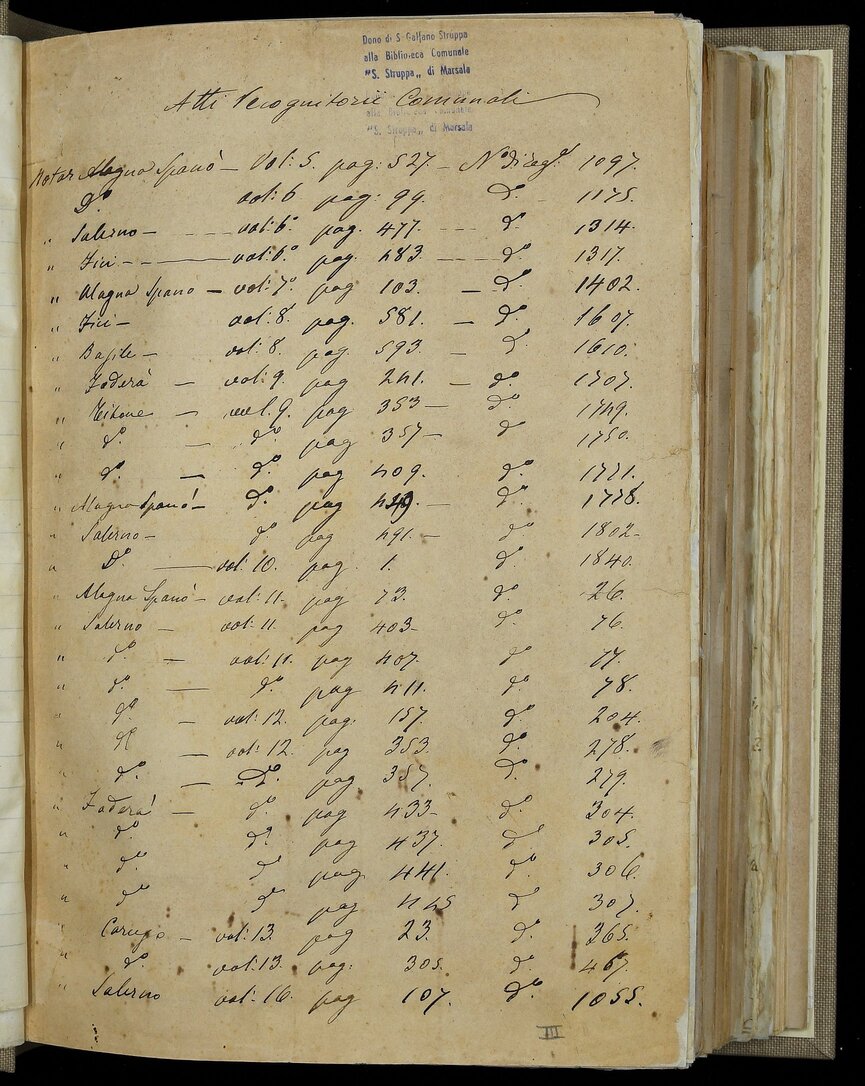 Dono di S. Galfano Struppa
alla Biblioteca Comunale
"S. Struppa„ di Marsala
Atti Recognitorii Comunali
alla Biblioteca Comunale
"S. Struppa„ di Marsala
Notar Alagna Spanò — Vol: 5. pag: 527 — N° di reg° 1097.
D.° vol: 6 pag: 99. d.° 1175.
„ Salerno — vol: 6° pag. 477. — d.° 1314.
„ Fici — vol: 6.° pag. 483. — d.° 1317.
„ Alagna Spanò — vol: 7.° pag 103. — d.° 1402.
„ Fici — vol: 8. pag. 581. — d.° 1607.
„ Basile — vol: 8. pag. 593. — d.° 1610.
„ Foderà — vol: 9. pag 241. — d.° 1707.
„ Titone — vol. 9. pag 353 — d.° 1749.
„ d.° — d.° pag 357 — d.° 1750.
„ d.° — d.° pag 409. d.° 1771.
„ Alagna Spanò — d.° pag — d.° 1778.
„ Salerno — d.° pag 491. — d.° 1802 —
„ D.° — vol: 10. pag. 1. d.° 1840.
„ Alagna Spanò — vol: 11. pag 73. d.° 26.
„ Salerno — vol: 11. pag 403 — d.° 76.
„ d.° — vol: 11. pag 407. d.° 77.
„ d.° — d.° pag 411. d.° 78.
„ d.° vol: 12. pag: 157. d.° 204.
„ d.° — vol: 12. pag 353. d.° 278.
„ d.° — D.° pag 357. d.° 279.
„ Foderà — d.° pag 433 — d.° 304.
„ d.° d.° pag 437. d.° 305.
„ d.° d.° pag 441. d.° 306.
„ d.° d.° pag 445 d.° 307.
„ — vol: 13. pag 23. d.° 365.
„ d.° vol: 13. pag: 305. d.° 467.
„ Salerno vol: 16. pag 107. d.° 1055.
III